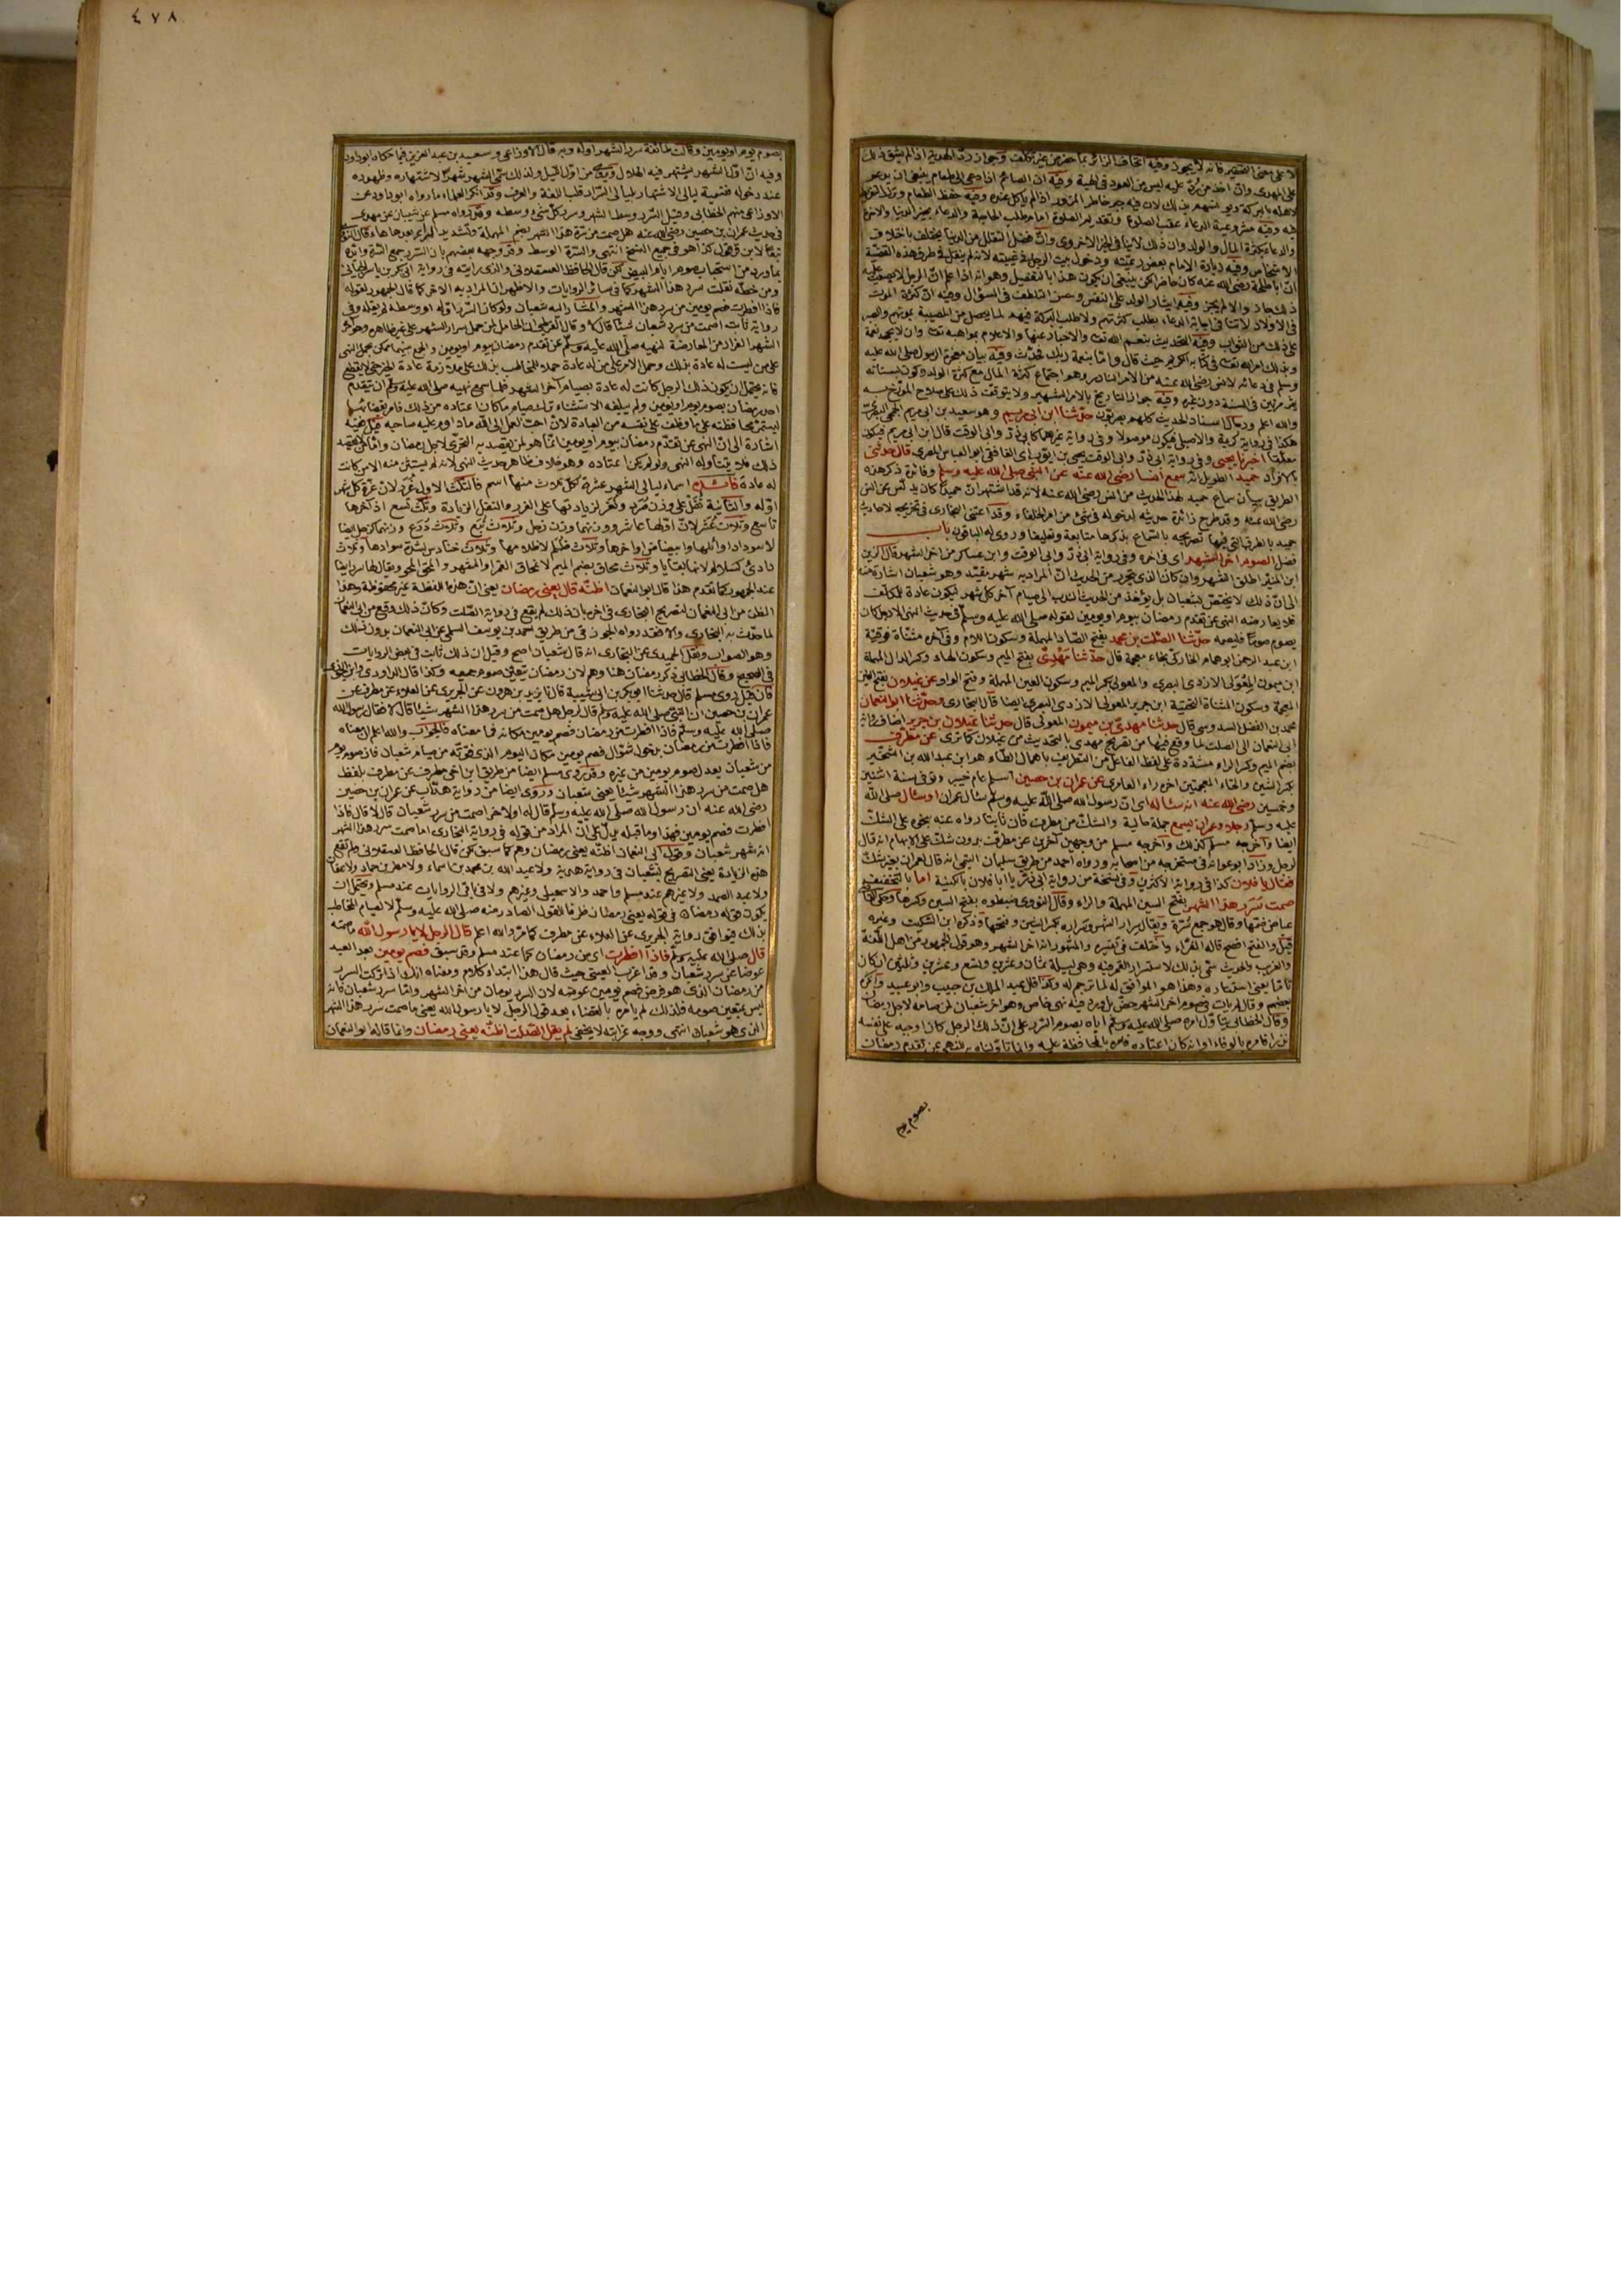 لا على معنى التحقير فانه لا يجوز وفيه اتحاف الزائر بما حضر من غير تكلف وجواز رد الهدية اذا لم يشق ذلك
على المهدى وان اخذ من رد عليه ليس من العود فى الهبة وفيه ان الصائم اذا دعى الى طعام ينبغى ان يدعو
فيه وفيه مشروعية الدعاء عقب الصلوة وتقديم الصلوة امام طلب الحاجة والدعاء بخير الدنيا والاخرة
والدعاء بكثرة المال والولد وان ذلك لا ينافى الخير الاخروى وان فضل التقلل من الدنيا يختلف باختلاف
الاشخاص وفيه زيارة الامام بعض رعيته ودخول بيت الرجل فى غيبته لانه لم ينقل فى طرق هذه القصة
فى الاولاد لا ينافى اجابة الدعاء بطلب كثرتهم ولا طلب البركة فيهم لما يحصل من المصيبة بموتهم والصبر
على ذلك من الثواب وفيه التحديث بنعم الله
وسلم فى دعائه لانس رضى الله عنه من الامر النادر وهو اجتماع كثرة المال مع كثرة الولد وكون بستانه
والله اعلم ورجال اسناد الحديث كلهم بصريون حدثنا ابن ابى مريم وهو سعيد بن ابى مريم الجمحى البصرى
هكذا فى رواية كريمة والاصيلى فيكون موصولا وفى رواية غيرهما كابى ذر وابى الوقت قال ابن ابى مريم فيكون
معلقا اخبرنا يحيى وفى رواية ابى ذر وابى الوقت يحيى بن ايوب اى الغافقى ابو العباس المصرى قال حدثنى
بالافراد حميد الطويل انه سمع انسا رضى الله عنه عن النبى صلى الله عليه وسلم وفائدة ذكر هذه
الطريق بيان سماع حميد لهذا الحديث من انس رضى الله عنه لانه قد اشتهر ان حميدا كان يدلس عن انس
رضى الله عنه وقد طرح زائدة حديثه لدخوله فى شئ من امر الخلفاء وقد اعتنى البخارى فى تخريجه لاحاديث
حميد بالطرق التى فيها تصريحه بالسماع بذكرها متابعة وتعليقا وروى له الباقون باب
فضل الصوم اخر الشهر اى فى اخره وفى رواية ابى ذر وابى الوقت وابن عساكر من اخر الشهر قال الزين
ابن المنير اطلق الشهر وان كان الذى يتحرر من الحديث ان المراد به شهر مقيد وهو شعبان اشارة منه
الى ان ذلك لا يختص بشعبان بل يؤخذ من الحديث الندب الى صيام اخر كل شهر ليكون عادة للمكلف
فلا يعارضه النهى عن تقدم رمضان بيوم او يومين لقوله صلى الله عليه وسلم فى حديث النهى الا رجل كان
يصوم صوما فليصمه حدثنا الصلت بن محمد بفتح الصاد المهملة وسكون اللام وفى آخره مثناة فوقية
ابن عبد الرحمن ابو همام الخاركى بخاء معجمة قال حدثنا مهدى بفتح الميم وسكون الهاء وكسر الدال المهملة
ابن ميمون المعولى الازدى البصرى والمعولى بكسر الميم وسكون العين المهملة وفتح الواو عن غيلان بفتح الغين
المعجمة وسكون المثناة التحتية ابن جرير المعولى الازدى البصرى ايضا قال البخارى وحدثنا ابو النعمان
محمد بن الفضل السدوسى قال حدثنا مهدى بن ميمون المعولى قال حدثنا غيلان بن جرير
ابى النعمان الى الصلت لما وقع فيها من تصريح مهدى بالتحديث من غيلان كما ترى عن مطرف
بضم الميم وكسر الراء مشددة على لفظ الفاعل من التطريف باهمال الطاء هو ابن عبد الله بن الشخير
بكسر الشين والخاء المعجمتين اخره راء العامرى عن عمران بن حصين اسلم عام خيبر وتوفى سنة اثنتين
وخمسين رضى الله عنه انه سأله اى ان رسول الله صلى الله عليه وسلم سأل عمران او سأل صلى الله
عليه وسلم رجلا وعمران يسمع جملة حالية والشك من مطرف فان ثابتا رواه عنه بنحوه على الشك
ايضا واخرجه مسلم كذلك واخرجه مسلم من وجهين آخرين عن مطرف بدون شك على الابهام انه قال
لرجل وزاد ابو عوانة فى مستخرجه من اصحابه ورواه احمد من طريق سليمان التيمى انه قال لعمران بغير شك
فقال يا فلان كذا فى رواية الاكثرين وفى نسخة من رواية ابى ذر يا ابا فلان بالكنية اما بالتخفيف
صمت سرر هذا الشهر بفتح السين المهملة والراء وقال النووى ضبطوه بفتح السين وكسرها وحكى القاضى
عياض ضمها وقال هو جمع سرة ويقال سرار الشهر وسراره بكسر السين وفتحها وذكره ابن السكيت وغيره
قيل والفتح افصح قاله الفراء واختلف فى تفسيره والمشهور انه اخر الشهر وهو قول الجمهور من اهل اللغة
والغريب والحديث سمى بذلك لاستسرار القمر فيه وهى ليلة ثمان وعشرين وتسع وعشرين وثلثين ان كان
تاما يعنى استتاره وهذا هو الموافق له لما ترجم له وكذا قال عبد الملك بن حبيب وابو عبيد
بعضهم وقال لم يات فى صوم اخر الشهر حض بل ورد فيه نهى خاص وهو اخر شعبان لمن صامه لاجل رمضان
وقال الخطابى يتأول امره صلى الله عليه وسلم اياه بصوم السرر على ان ذلك الرجل كان اوجبه على نفسه
نذرا فامره بالوفاء او انه كان اعتاده فامره بالمحافظة عليه وانما تأولناه للنهى عن تقدم رمضان
بصوم يوم
٤٧٨
بصوم يوم او يومين وقالت طائفة سرر الشهر اوله وبه قال الاوزاعى وسعيد بن عبد العزيز فيما حكاه ابو داود
وفيه ان اول الشهر يشتهر فيه الهلال ويرى من اول الليل ولذلك سمى الشهر شهرا لاشتهاره وظهوره
عند دخوله فتسمية ليالى الاشتهار بليالى السرار قلب اللغة والعرف وقد انكر العلماء ما رواه ابو داود عن
الاوزاعى منهم الخطابى وقيل السرر وسط الشهر وسرر كل شئ وسطه
فى حديث عمران بن حصين رضى الله عنه هل صمت من سرة هذا الشهر بضم المهملة وتشديد الراء بعدها هاء
بما ورد من استحباب صوم ايام البيض لكن قال الحافظ العسقلانى والذى رايته فى رواية
ومن خطه نقلت سرر هذا الشهر كما فى سائر الروايات والاظهر ان المراد به الاخر كما قال الجمهور لقوله
فاذا افطرت فصم يومين من سرر هذا الشهر والمشار اليه شعبان ولو كان السرر اوله او وسطه لم يفته
الشهر الفرار من المعارضة لنهيه صلى الله عليه وسلم عن تقدم رمضان بيوم او يومين والجمع بينهما ممكن بحمل النهى
على من ليست له عادة بذلك وحمل الامر على من له عادة حملا للمخاطب بذلك على ملازمة عادة الخير حتى لا يقطع
فانه يحتمل ان يكون ذلك الرجل كانت له عادة بصيام اخر الشهر فلما سمع نهيه صلى الله عليه وسلم ان يتقدم
احد رمضان بصوم يوم او يومين ولم يبلغه الاستثناء ترك صيام ما كان اعتاده من ذلك فامره بقضائها
لتستمر محافظته على ما وظف على نفسه من العبادة لان احب العمل الى الله ما داوم عليه صاحبه
اشارة الى ان النهى عن تقدم رمضان بيوم او يومين انما هو لمن يقصد به التحرى لاجل رمضان واما من لم يقصد
ذلك فلا يتناوله النهى ولو لم يكن اعتاده وهو خلاف ظاهر حديث النهى لانه لم يستثن منه الا من كانت
له عادة فائدة اسماء ليالى الشهر عشرة لكل ثلاث منها اسم فالثلث الاول غرر لان غرة كل شهر
اوله والثانية نفل على وزن صرد ونغر لزيادتها على الغرر والنفل الزيادة وثلاث تسع اذ آخرها
تاسع وثلاث عشر لان اولها عاشر ووزنهما وزن زحل وثلاث تبع وثلاث درع ووزنهما كزحل ايضا
لاسوداد اوائلها وابيضاض اواخرها وثلاث ظلم لاظلامها وثلاث حنادس لشدة سوادها وثلاث
دادئ كسلالم لانها بقايا وثلاث محاق بضم الميم لانمحاق القمر او الشهر
عند الجمهور كما تقدم هذا قال ابو النعمان اظنه قال يعنى رمضان يعنى ان هذه اللفظة غير محفوظة وهذا
الظن من ابى النعمان لتصريح البخارى فى اخره بان ذلك لم يقع فى رواية الصلت وكان ذلك وقع من ابى النعمان
لما حدث به البخارى والا فقد رواه الجوزقى من طريق احمد بن يوسف السلمى عن ابى النعمان بدون ذلك
وهو الصواب ونقل الحميدى عن البخارى انه قال شعبان اصح وقيل ان ذلك ثابت فى بعض الروايات
فى الصحيح وقال الخطابى ذكر رمضان هنا وهم لان رمضان يتعين صوم جميعه وكذا قال الداودى وابن الجوزى
فان قيل روى مسلم قال حدثنا ابو بكر بن ابى شيبة قال ثنا يزيد بن هرون عن الجريرى عن العلاء عن مطرف عن
عمران بن حصين ان النبى صلى الله عليه وسلم قال لرجل هل صمت من سرر هذا الشهر شيئا قال لا فقال رسول الله
صلى الله عليه وسلم فاذا افطرت من رمضان فصم يومين مكانه فما معناه فالجواب والله اعلم ان معناه
فاذا افطرت من رمضان بدخول شوال فصم يومين مكان اليوم الذى فوته من صيام شعبان فان صوم يوم
من شعبان يعدل صوم يومين من غيره وقد روى مسلم ايضا من طريق ابن اخى مطرف عن مطرف بلفظ
هل صمت من سرر هذا الشهر شيئا يعنى شعبان وروى ايضا من رواية هداب عن عمران بن حصين
رضى الله عنه ان رسول الله صلى الله عليه وسلم قال له او لاخر اصمت من سرر شعبان قال لا قال فاذا
افطرت فصم يومين فهذا وما قبله يدل على ان المراد من قوله فى رواية البخارى اما صمت سرر هذا الشهر
انه شهر شعبان وقول ابى النعمان اظنه يعنى رمضان وهم كما سبق لكن قال الحافظ العسقلانى ولم تقع
هذه الزيادة يعنى التصريح بشعبان فى رواية هدبة ولا عبد الله بن محمد بن اسماء ولا
ولا عبد الصمد ولا غيرهم عند مسلم واحمد والاسمعيلى وغيرهم ولا فى باقى الروايات عند مسلم ويحتمل ان
يكون قوله رمضان فى قوله يعنى رمضان ظرفا للقول الصادر منه صلى الله عليه وسلم لا لصيام المخاطب
بذلك فيوافق رواية الجريرى عن العلاء عن مطرف كما مر والله اعلم قال الرجل لا يا رسول الله ما صمته
قال صلى الله عليه وسلم فاذا افطرت اى من رمضان كما عند مسلم وقد سبق فصم يومين بعد العيد
عوضا عن سرر شعبان وقد اغرب العينى حيث قال هذا ابتداء كلام ومعناه انك اذا تركت السرر
من رمضان الذى هو فرض فصم يومين عوضه لان السرر يومان من اخر الشهر واما سرر شعبان فانه
ليس بمتعين صومه فلذلك لم يامره بالقضاء بعد قول الرجل لا يا رسول الله يعنى ما صمت سرر هذا الشهر
الذى هو شعبان انتهى ووجه غرابته لا يخفى لم يقل الصلت اظنه يعنى رمضان وانما قاله ابو النعمان